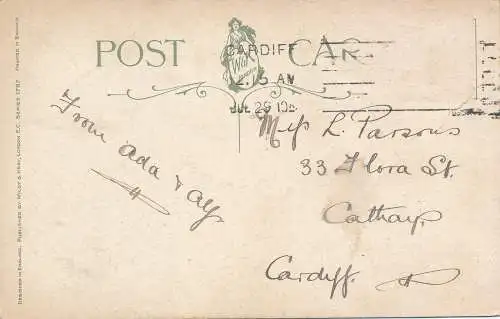 POST CARD
W&K
LONDON
CARDIFF
2.15 AM
JUL 26 19
From Ada & Alf
Miss L. Parsons
33 Flora St.
Cathays
Cardiff.
DESIGNED IN ENGLAND. PUBLISHED BY WILDT & KRAY, LONDON E.C. SERIES 1787 PRINTED IN